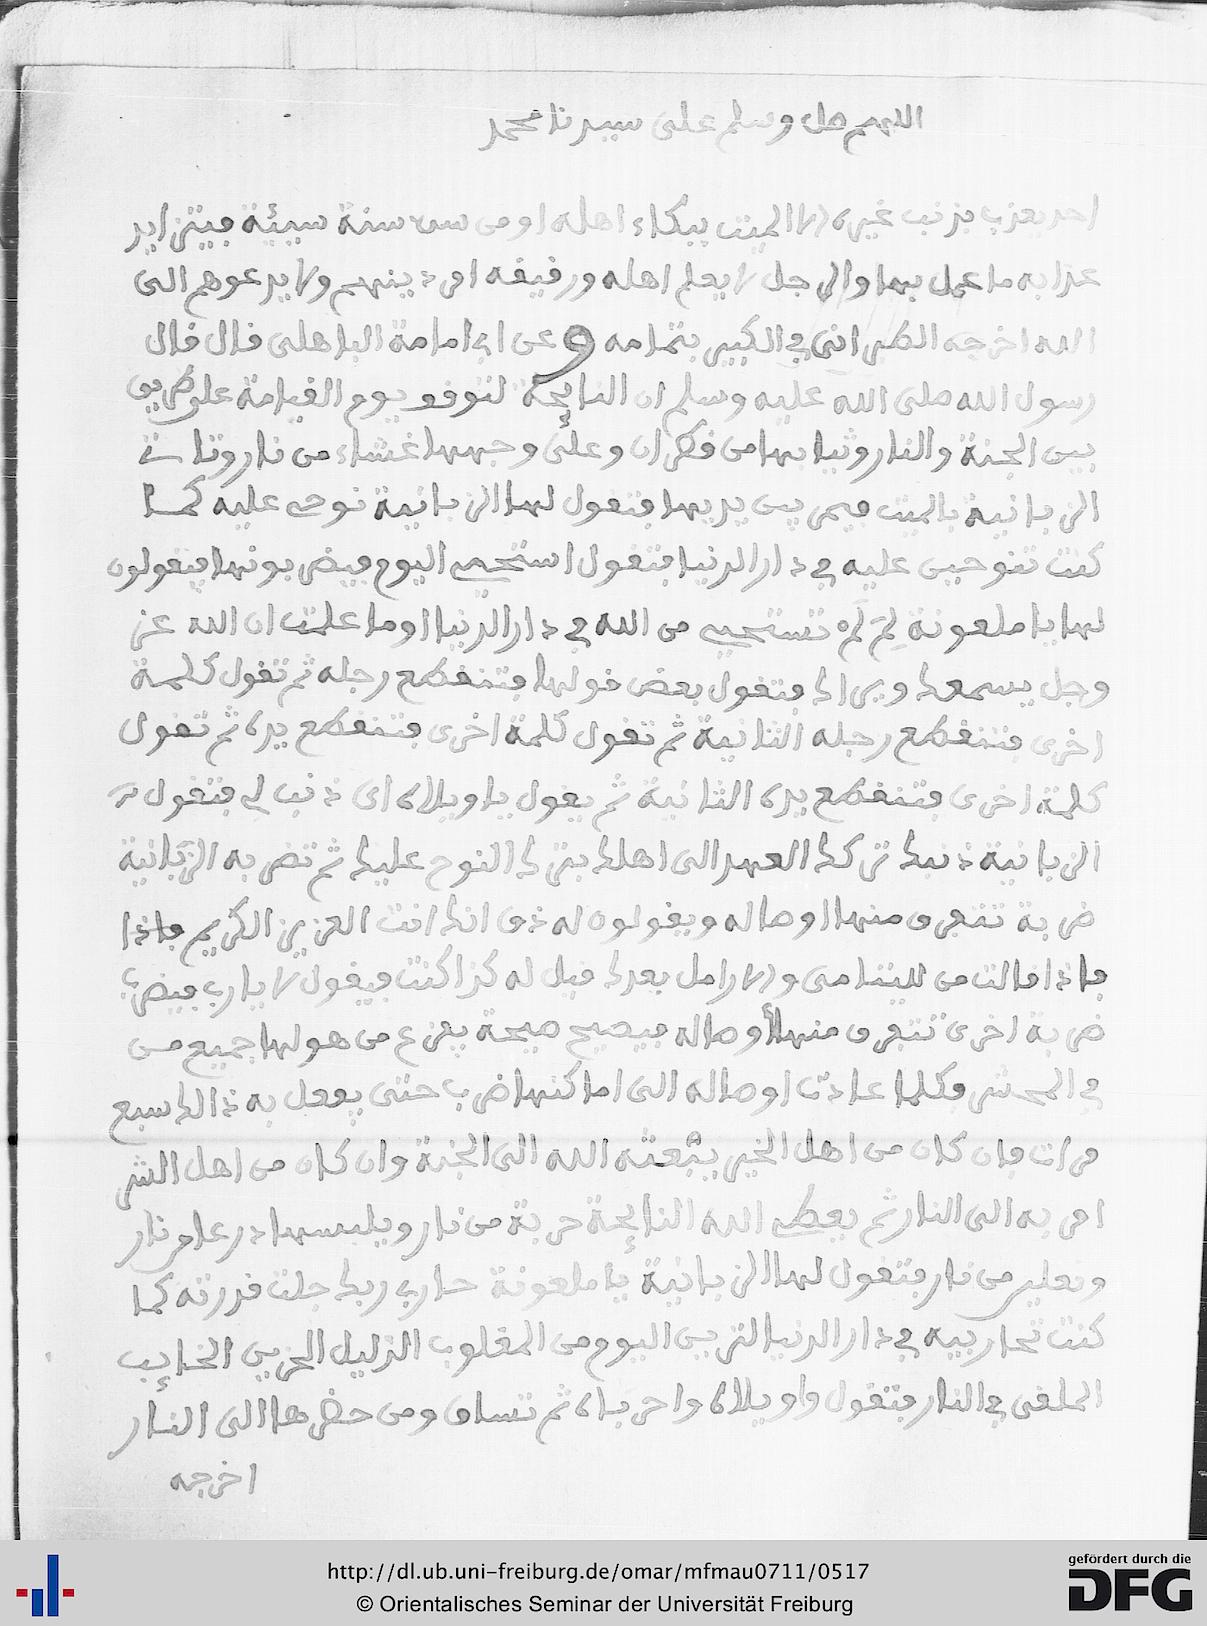 اللهم صل وسلم على سيدنا محمد
احد يعذب بذنب غيره الا الميت ببكاء اهله او من سن سنة سيئة فيتزايد
عذابه ما عمل بها والرجل لا يعلم اهله ورفيقه امر دينهم ولا يدعوهم الى
الله اخرجه الطبراني في الكبير بتمامه وعن ابي امامة الباهلي قال قال
رسول الله صلى الله عليه وسلم ان النايحة لتوقف يوم القيامة على طريق
بين الجنة والنار وثيابها من قطران وعلى وجهها غشاء من نار وتات
الزبانية بالميت بين يديها فتقول لها الزبانية نوحي عليه كما
كنت تنوحين عليه في دار الدنيا فتقول استحي اليوم فيضربونها فيقولون
لها يا ملعونة لم لم تستحي من الله في دار الدنيا اوما علمت ان الله عز
وجل يسمعك ويراك فتقول بعض قولها فتنقطع رجله ثم تقول كلمة
اخرى فتنقطع رجله الثانية ثم تقول كلمة اخرى فتنقطع يده ثم تقول
كلمة اخرى فتنقطع يده الثانية ثم يقول يا ويلاه اى ذنب لي فتقول
الزبانية ذنبك تركك العهد الى اهلك بترك النوح عليك ثم تضربه الزبانية
ضربة تتفرق منها اوصاله ويقولون له ذق انك انت العزيز الكريم فاذا
فاذا قالت من لليتامى والارامل بعدك قيل له كذا كنت فيقول لا يا رب فيضرب
ضربة اخرى تتفرق منها أوصاله فيصيح صيحة يفزع من هولها جميع من
في المحشر فكلما عادت اوصاله الى اماكنها ضرب حتى يفعل به ذالك سبع
مرات فان كان من اهل الخير يبعثه الله الى الجنة وان كان من اهل الشر
امر به الى النار ثم يعطي الله النايحة حربة من نار ويلبسها درعا من نار
ونعلين من نار فتقول لها الزبانية يا ملعونة حارب ربك جلت قدرته كما
كنت تحاربيه في دار الدنيا لترين اليوم من المغلوب الذليل الحزين الخايب
الملقى في النار فتقول واويلاه واحرباه ثم تساق ومن حضرها الى النار
اخرجه
http://dl.ub.uni-freiburg.de/omar/mfmau0711/0517
© Orientalisches Seminar der Universität Freiburg
gefördert durch die
DFG